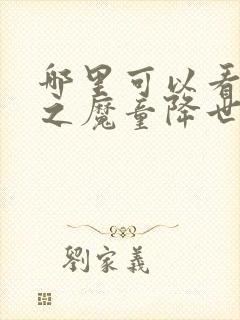 哪里可以看
之魔童降世
劉家義